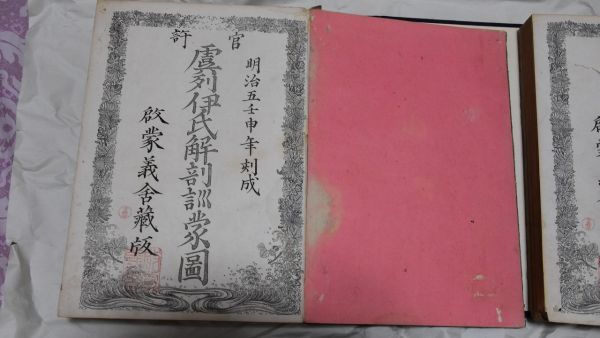 官許
明治五壬申年刻成
虞列伊氏解剖訓蒙圖
啟蒙義舍藏版
啟蒙